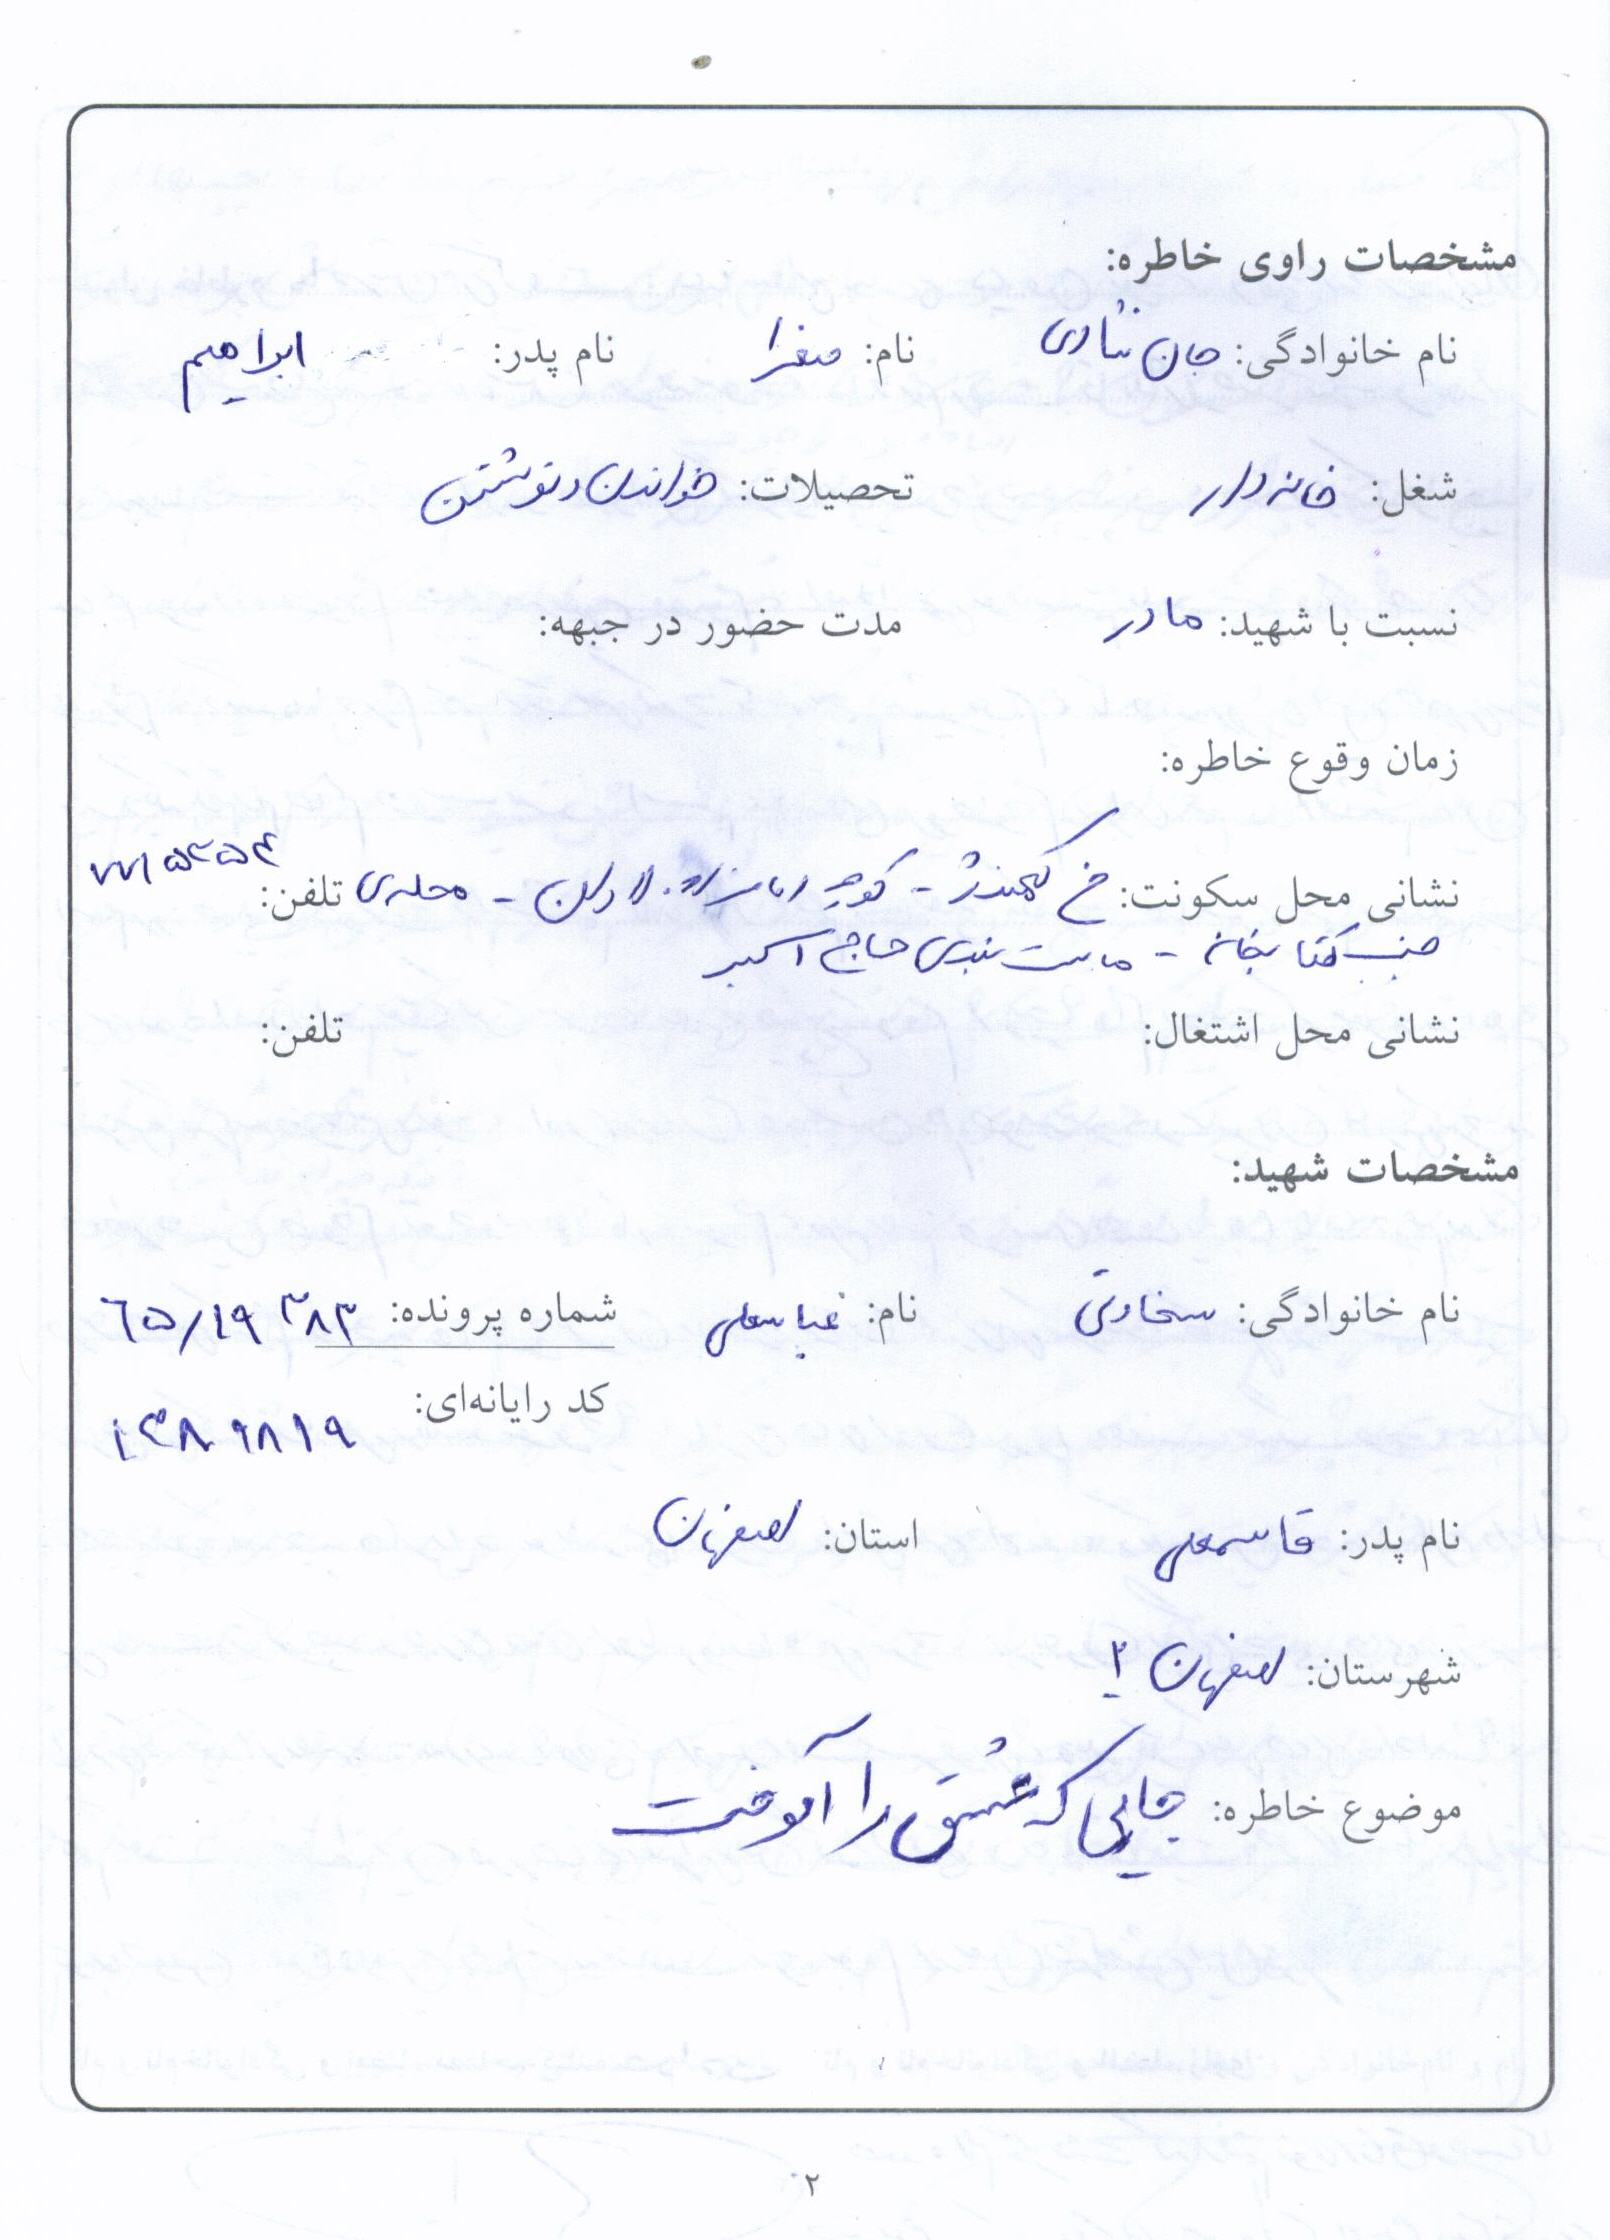 مشخصات راوی خاطره:
نام خانوادگی: جان نثاری نام: صغرا نام پدر: ابراهیم
شغل: خانه دار تحصیلات: خواندن و نوشتن
نسبت با شهید: مادر مدت حضور در جبهه:
زمان وقوع خاطره:
نشانی محل سکونت: خ کهندژ - کوچه امامزاده لادان - محله‌ی تلفن:
جنب کتابخانه - ماست بندی حاج اکبر
نشانی محل اشتغال: تلفن:
مشخصات شهید:
نام خانوادگی: سخاوتی نام: عباسعلی شماره پرونده: ۶۵/۱۹۳۸۳
کد رایانه‌ای: ۱۳۸۹۸۱۹
نام پدر: قاسمعلی استان: اصفهان
شهرستان: اصفهان ۲
موضوع خاطره: جایی که عشق را آموخت
۲